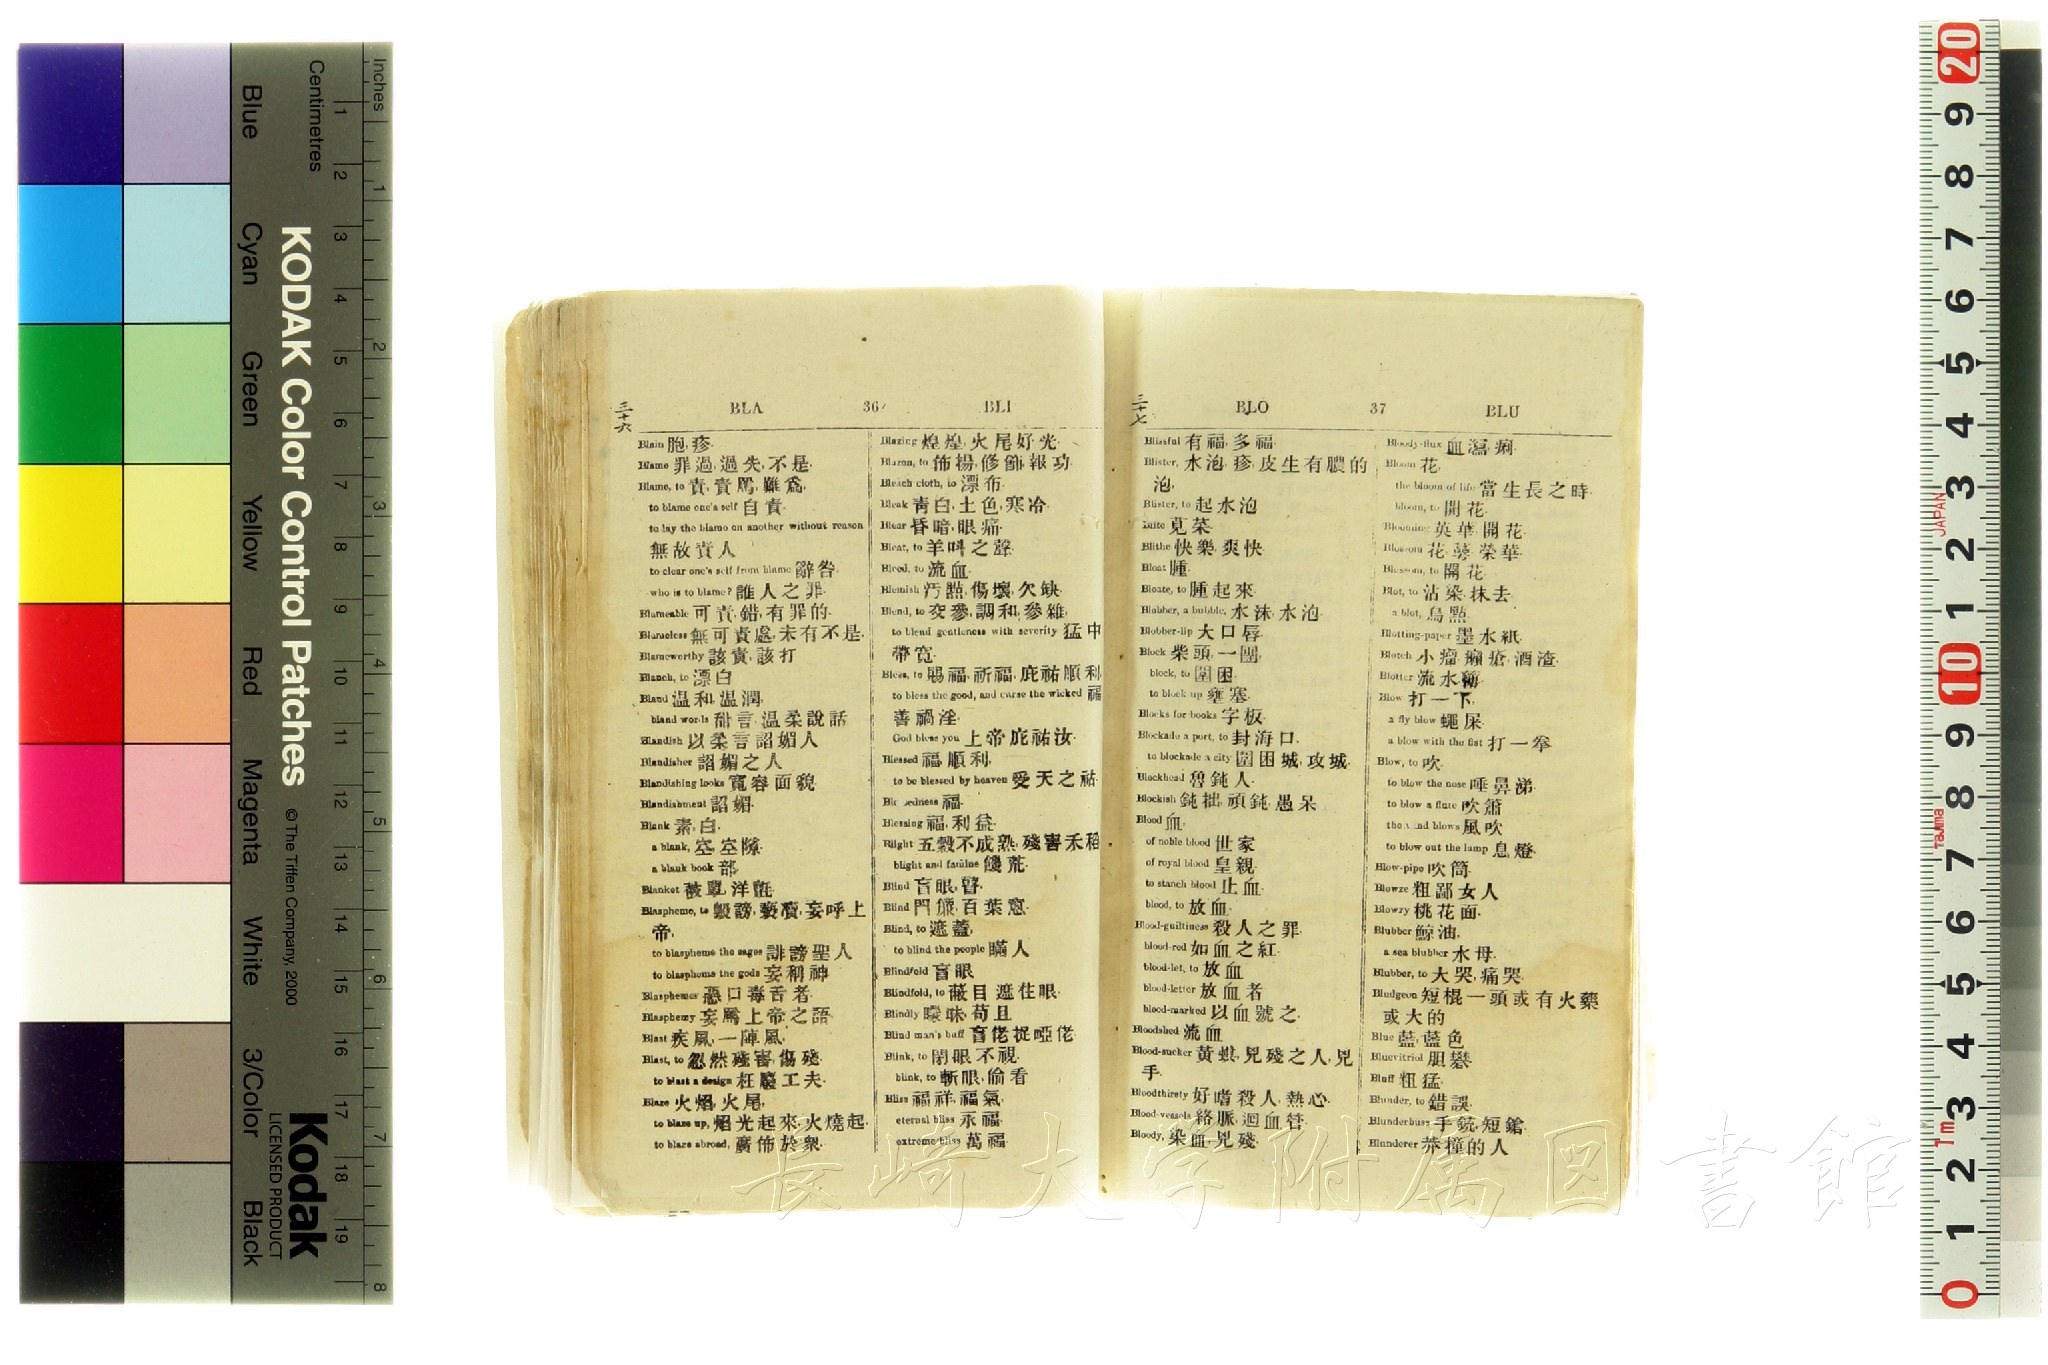 三十六
BLA 36 BLI
Blain 胞,疹.
Blame 罪過,過失,不是.
Blame, to 責,責罵,雖爲.
to blame one's self 自責.
to lay the blame on another without reason
無故責人
to clear one's self from blame 辭咎.
who is to blame? 誰人之罪.
Blameable 可責,錯,有罪的.
Blameless 無可責處,未有不是.
Blameworthy 該責,該打
Blanch, to 漂白
Bland 温和,温潤,
bland words 甜言,温柔說話
Blandish 以柔言諂媚人
Blandisher 諂媚之人
Blandishing looks 寬容面貌
Blandishment 諂媚.
Blank 素,白.
a blank, 空,空隙.
a blank book 部.
Blanket 被氈,洋氈.
Blaspheme, to 毀謗,褻瀆,妄呼上
帝,
to blaspheme the sages 誹謗聖人
to blaspheme the gods 妄稱神
Blasphemer 惡口毒舌者.
Blasphemy 妄罵上帝之語
Blast 疾風,一陣風,
Blast, to 忽然殘害,傷殘.
to blast a design 枉廢工夫.
Blaze 火焰,火尾,
to blaze up, 焰光起來,火燒起.
to blaze abroad, 廣佈於衆.
Blazing 煌煌,火尾好光.
Blazon, to 佈揚,修飾,報功.
Bleach cloth, to 漂布.
Bleak 靑白,土色,寒冷.
Blear 昏暗,眼痛.
Bleat, to 羊叫之聲.
Bleed, to 流血.
Blemish 汚點,傷壞,欠缺.
Blend, to 交參,調和,參雜,
to blend gentleness with severity 猛中
帶寬.
Bless, to 賜福,祈福,庇祐順利
to bless the good, and curse the wicked 福
善禍淫.
God bless you 上帝庇祐汝.
Blessed 福,順利,
to be blessed by heaven 受天之祐.
Blessedness 福.
Blessing 福,利益.
Blight 五穀不成熟,殘害禾稻
blight and famine 饑荒.
Blind 盲眼,瞽.
Blind 門簾,百葉窓.
Blind, to 遮蓋,
to blind the people 瞞人
Blindfold 盲眼
Blindfold, to 蔽目,遮住眼.
Blindly 曚昧,苟且
Blind man's buff 盲佬捉啞佬.
Blink, to 閉眼不視.
blink, to 斬眼,偷看
Bliss 福祥,福氣.
eternal bliss 永福.
extreme bliss 萬福.
三十七
BLO 37 BLU
Blissful 有福,多福.
Blister, 水泡,疹,皮生有膿的
泡,
Blister, to 起水泡
Blite 莧菜.
Blithe 快樂,爽快.
Bloat 腫.
Bloate, to 腫起來.
Blubber, a bubble, 水沬,水泡.
Blobber-lip 大口唇.
Block 柴頭,一團,
block, to 圍困.
to block up 壅塞.
Blocks for books 字板.
Blockade a port, to 封海口.
to blockade a city 圍困城,攻城.
Blockhead 魯鈍人.
Blockish 鈍拙,頑鈍,愚呆
Blood 血,
of noble blood 世家
of royal blood 皇親.
to stanch blood 止血.
blood, to 放血.
Blood-guiltiness 殺人之罪.
blood-red 如血之紅.
blood-let, to 放血
blood-letter 放血者
blood-marked 以血號之.
Bloodshed 流血
Blood-sucker 黃蜞,兇殘之人,兇
手.
Bloodthirsty 好嗜殺人,熱心.
Blood-vessels 絡脈,迴血管.
Bloody, 染血,兇殘.
Bloody-flux 血瀉,痢.
Bloom 花.
the bloom of life 當生長之時.
bloom, to 開花.
Blooming 英華,開花.
Blossom 花,蕚,榮華.
Blossom, to 開花.
Blot, to 沾染,抹去.
a blot, 烏點
Blotting-paper 墨水紙.
Blotch 小瘤,癩瘡,酒渣.
Blotter 流水簿.
Blow 打一下.
a fly blow 蠅屎.
a blow with the fist 打一拳
Blow, to 吹.
to blow the nose 唾鼻涕.
to blow a flute 吹簫
the wind blows 風吹
to blow out the lamp 息燈.
Blow-pipe 吹筒.
Blowze 粗鄙女人
Blowzy 桃花面.
Blubber 鯨油.
a sea blubber 水母.
Blubber, to 大哭,痛哭.
Bludgeon 短棍一頭或有火藥
或大的
Blue 藍,藍色
Bluevitriol 胆礬.
Bluff 粗猛.
Blunder, to 錯誤.
Blunderbuss 手銃,短鎗.
Blunderer 莽撞的人
長崎大学附属図書館
Inches
Centimetres
KODAK Color Control Patches
© The Tiffen Company, 2000
Kodak
LICENSED PRODUCT
Blue Cyan Green Yellow Red Magenta White 3/Color Black
1 2 3 4 5 6 7 8 9 10 11 12 13 14 15 16 17 18 19
1 2 3 4 5 6 7 8
20 9 8 7 6 5 4 3 2 1 10 9 8 7 6 5 4 3 2 1 0
JAPAN
Tajima
1m